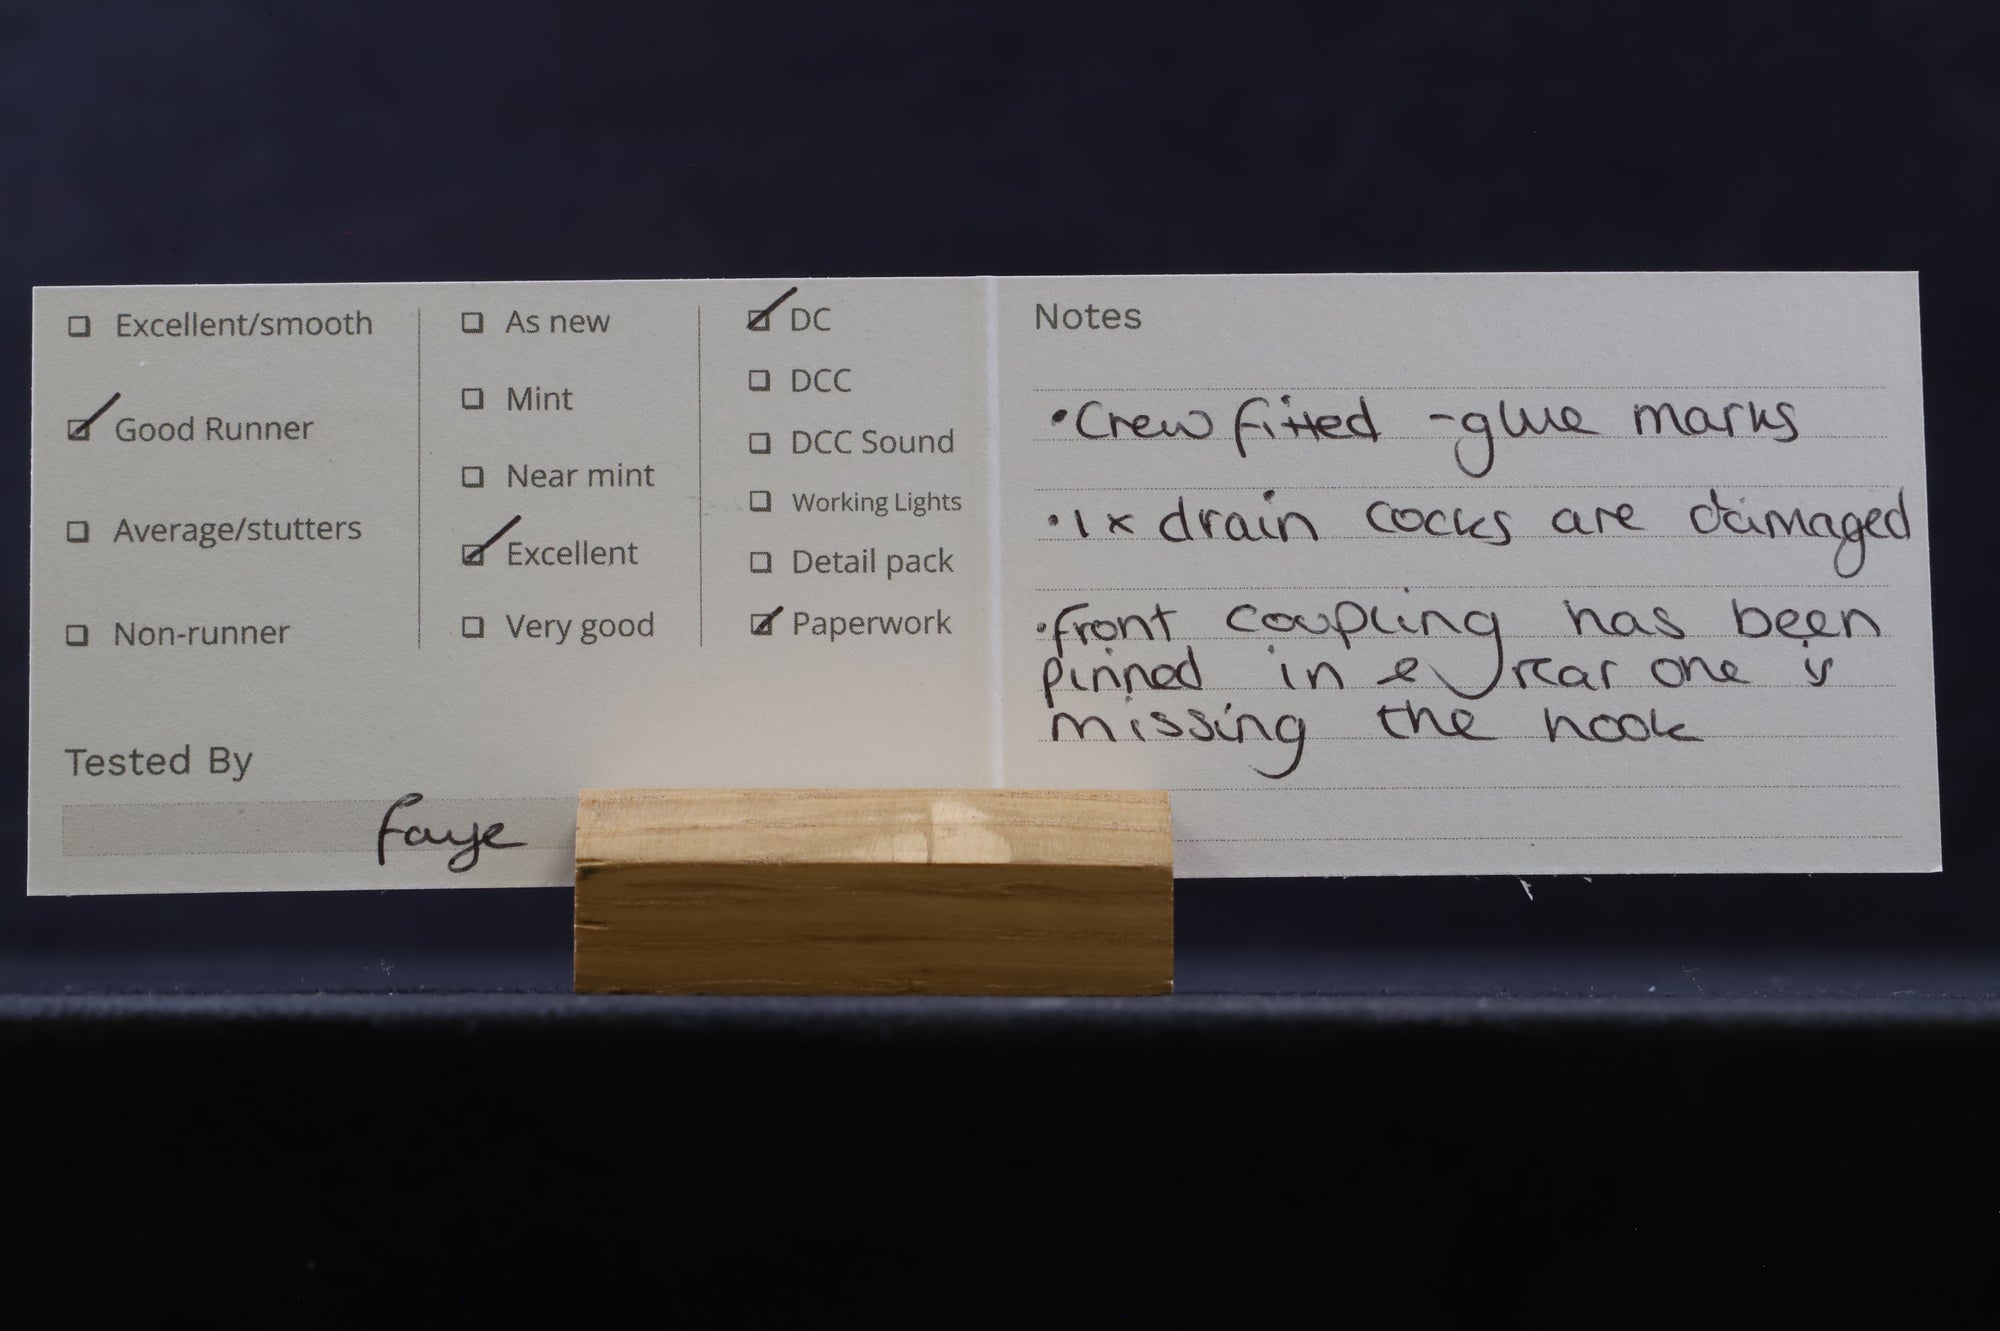 ☐ Excellent/smooth
☑ Good Runner
☐ Average/stutters
☐ Non-runner
☐ As new
☐ Mint
☐ Near mint
☑ Excellent
☐ Very good
☑ DC
☐ DCC
☐ DCC Sound
☐ Working Lights
☐ Detail pack
☑ Paperwork
Tested By
Faye
Notes
• Crew fitted - glue marks
• 1x drain cocks are damaged
• front coupling has been
pinned in & rear one is
missing the hook